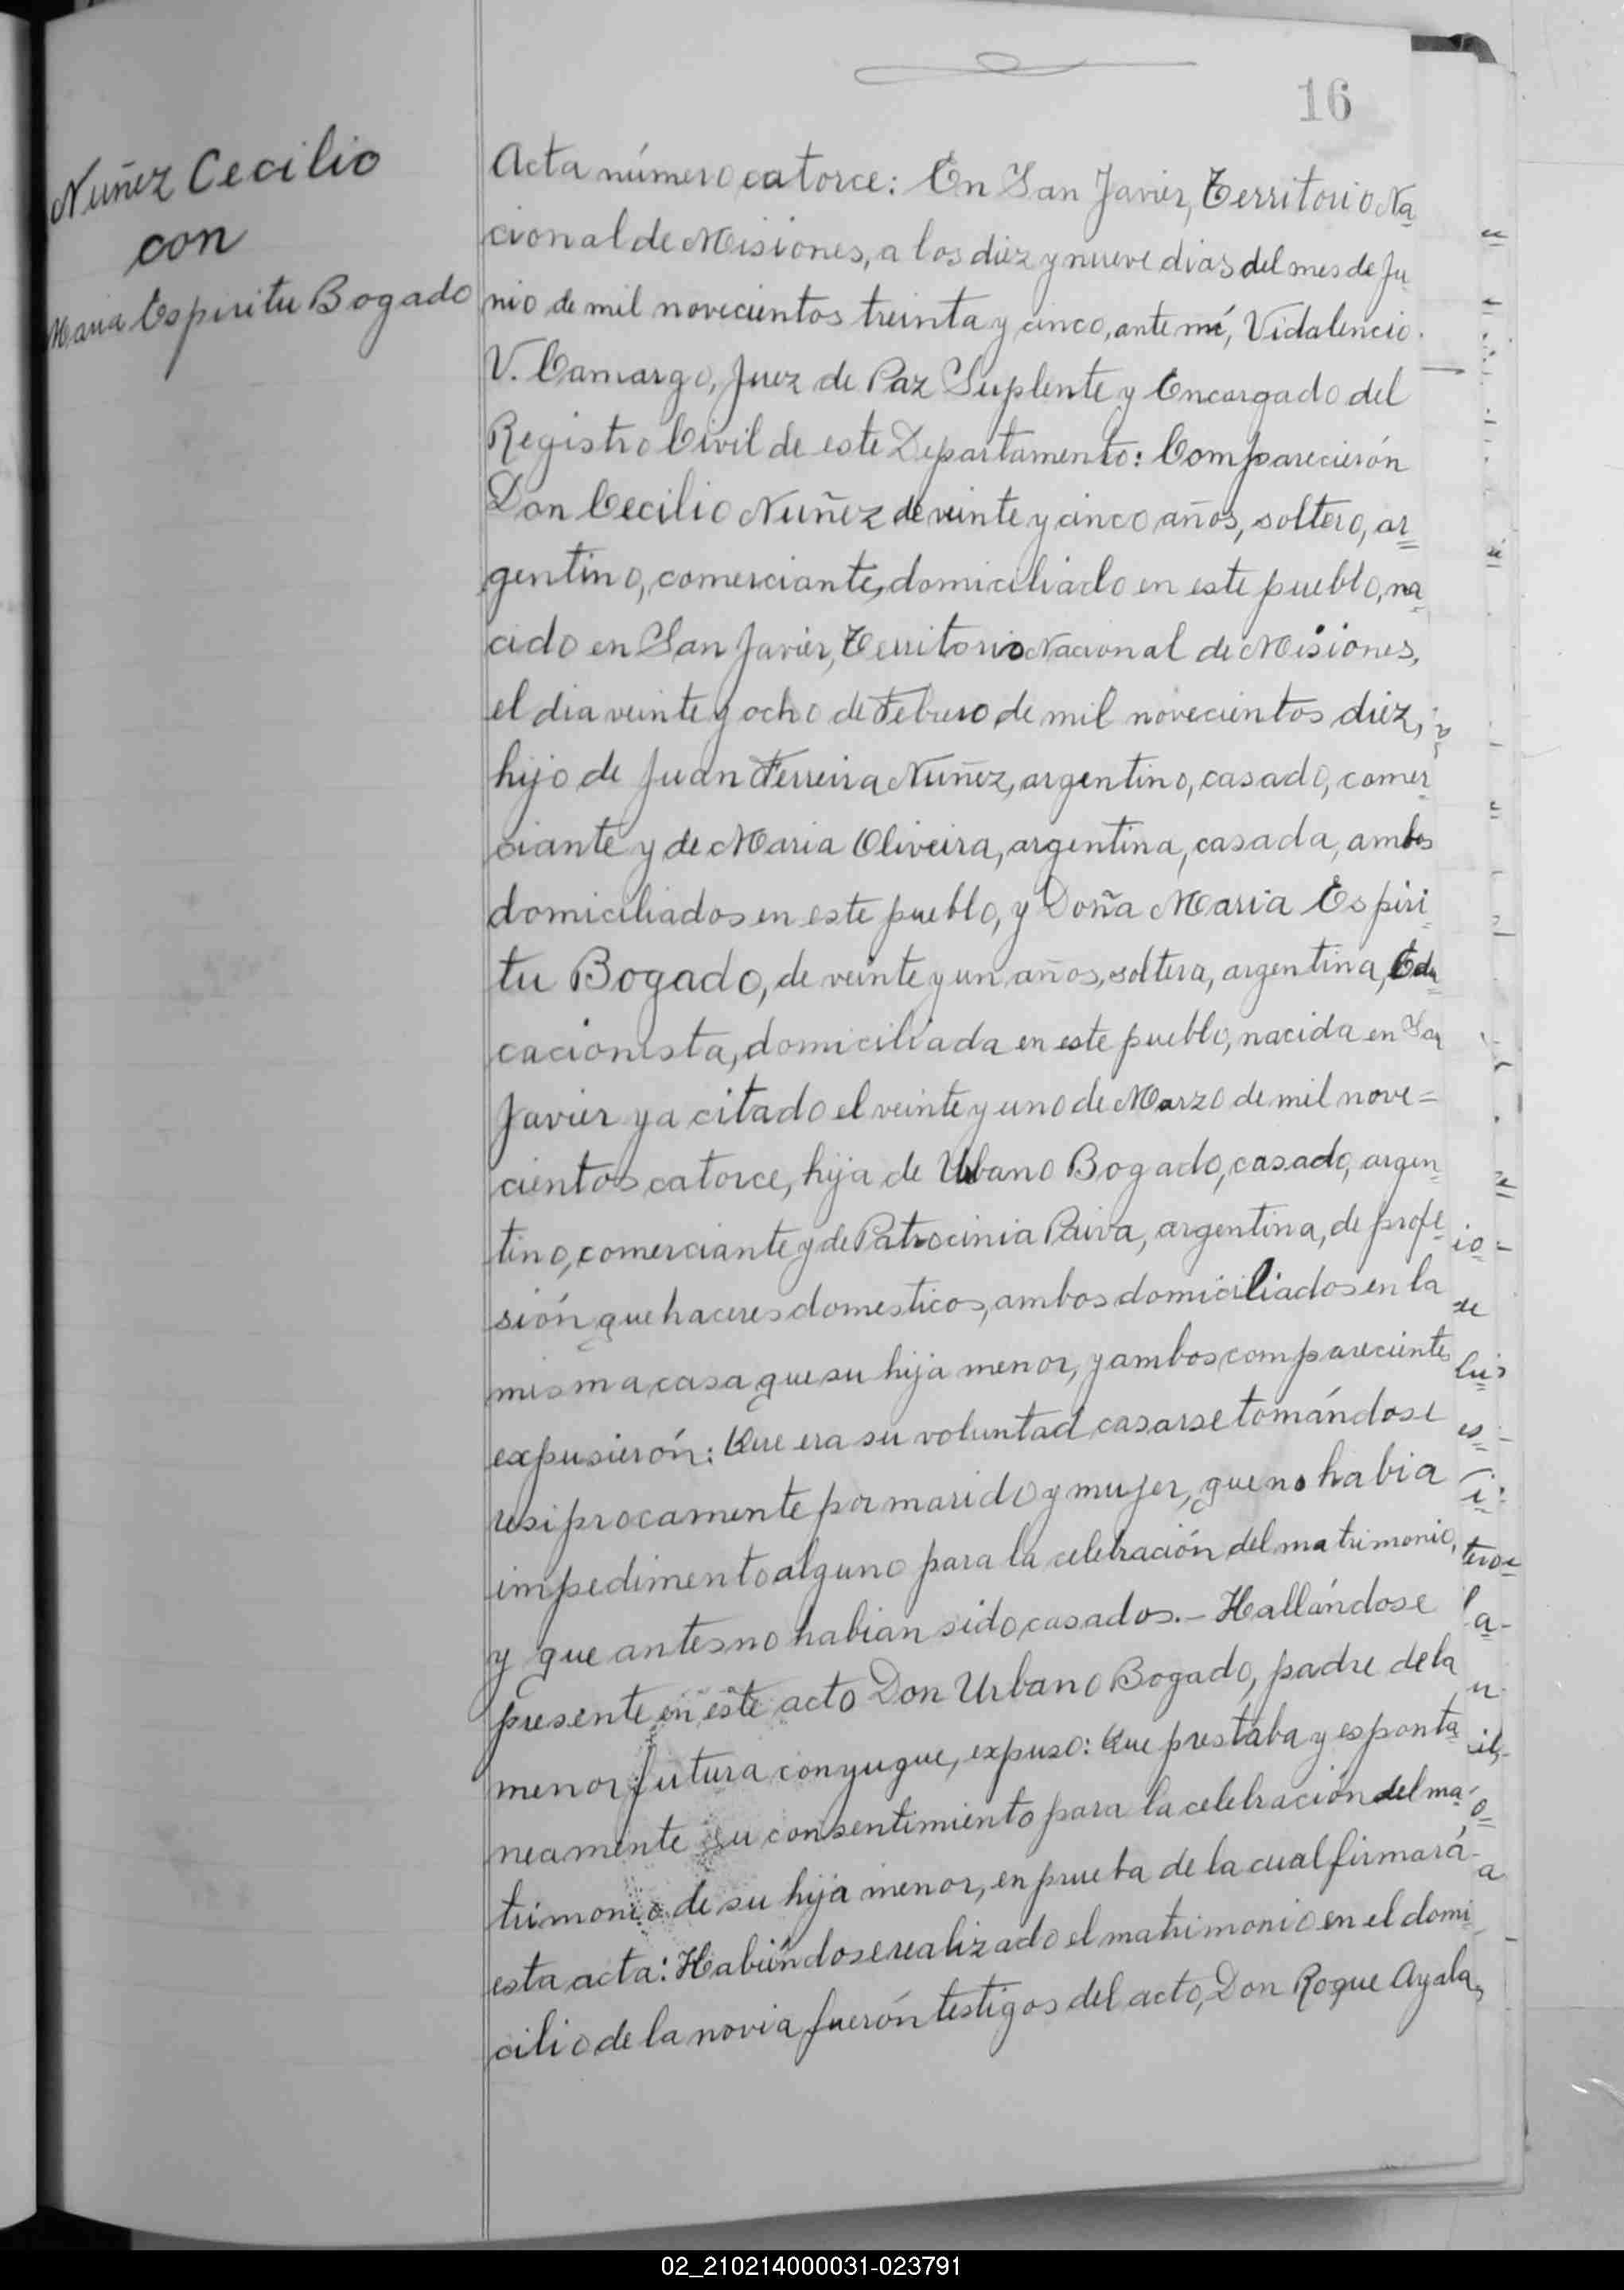 16
Nuñez Cecilio
con
Maria Espiritu Bogado
Acta número catorce: En San Javier, Territorio Na
cional de Misiones, a los diez y nueve dias del mes de Ju
nio de mil novecientos treinta y cinco, ante mí, Vidalencio
V. Camargo, Juez de Paz Suplente y Encargado del
Registro Civil de este Departamento: Comparecierón
Don Cecilio Nuñez de veinte y cinco años, soltero, ar
gentino, comerciante, domiciliado en este pueblo, na
cido en San Javier, Territorio Nacional de Misiones,
el dia veinte y ocho de Febrero de mil novecientos diez,
hijo de Juan Ferreira Nuñez, argentino, casado, comer
ciante y de Maria Oliveira, argentina, casada, ambos
domiciliados en este pueblo, y Doña Maria Espiri
tu Bogado, de veinte y un años, soltera, argentina, Edu
cacionista, domiciliada en este pueblo, nacida en San
Javier ya citado el veinte y uno de Marzo de mil nove=
cientos catorce, hija de Urbano Bogado, casado, argen
tino, comerciante y de Patrocinia Paiva, argentina, de profe
sión quehaceres domesticos, ambos domiciliados en la
misma casa que su hija menor, y ambos comparecientes
expusierón: Que era su voluntad casarse tomándose
resiprocamente por marido y mujer, que no habia
impedimento alguno para la celebración del matrimonio,
y que antes no habian sido casados.- Hallándose
presente en este acto Don Urbano Bogado, padre de la
menor futura conyugue, expuso: Que prestaba y esponta
neamente su consentimiento para la celebración del ma
trimonio de su hija menor, en prueba de la cual firmará
esta acta: Habiéndose realizado el matrimonio en el domi
cilio de la novia fuerón testigos del acto, Don Roque Ayala,
02_210214000031-023791